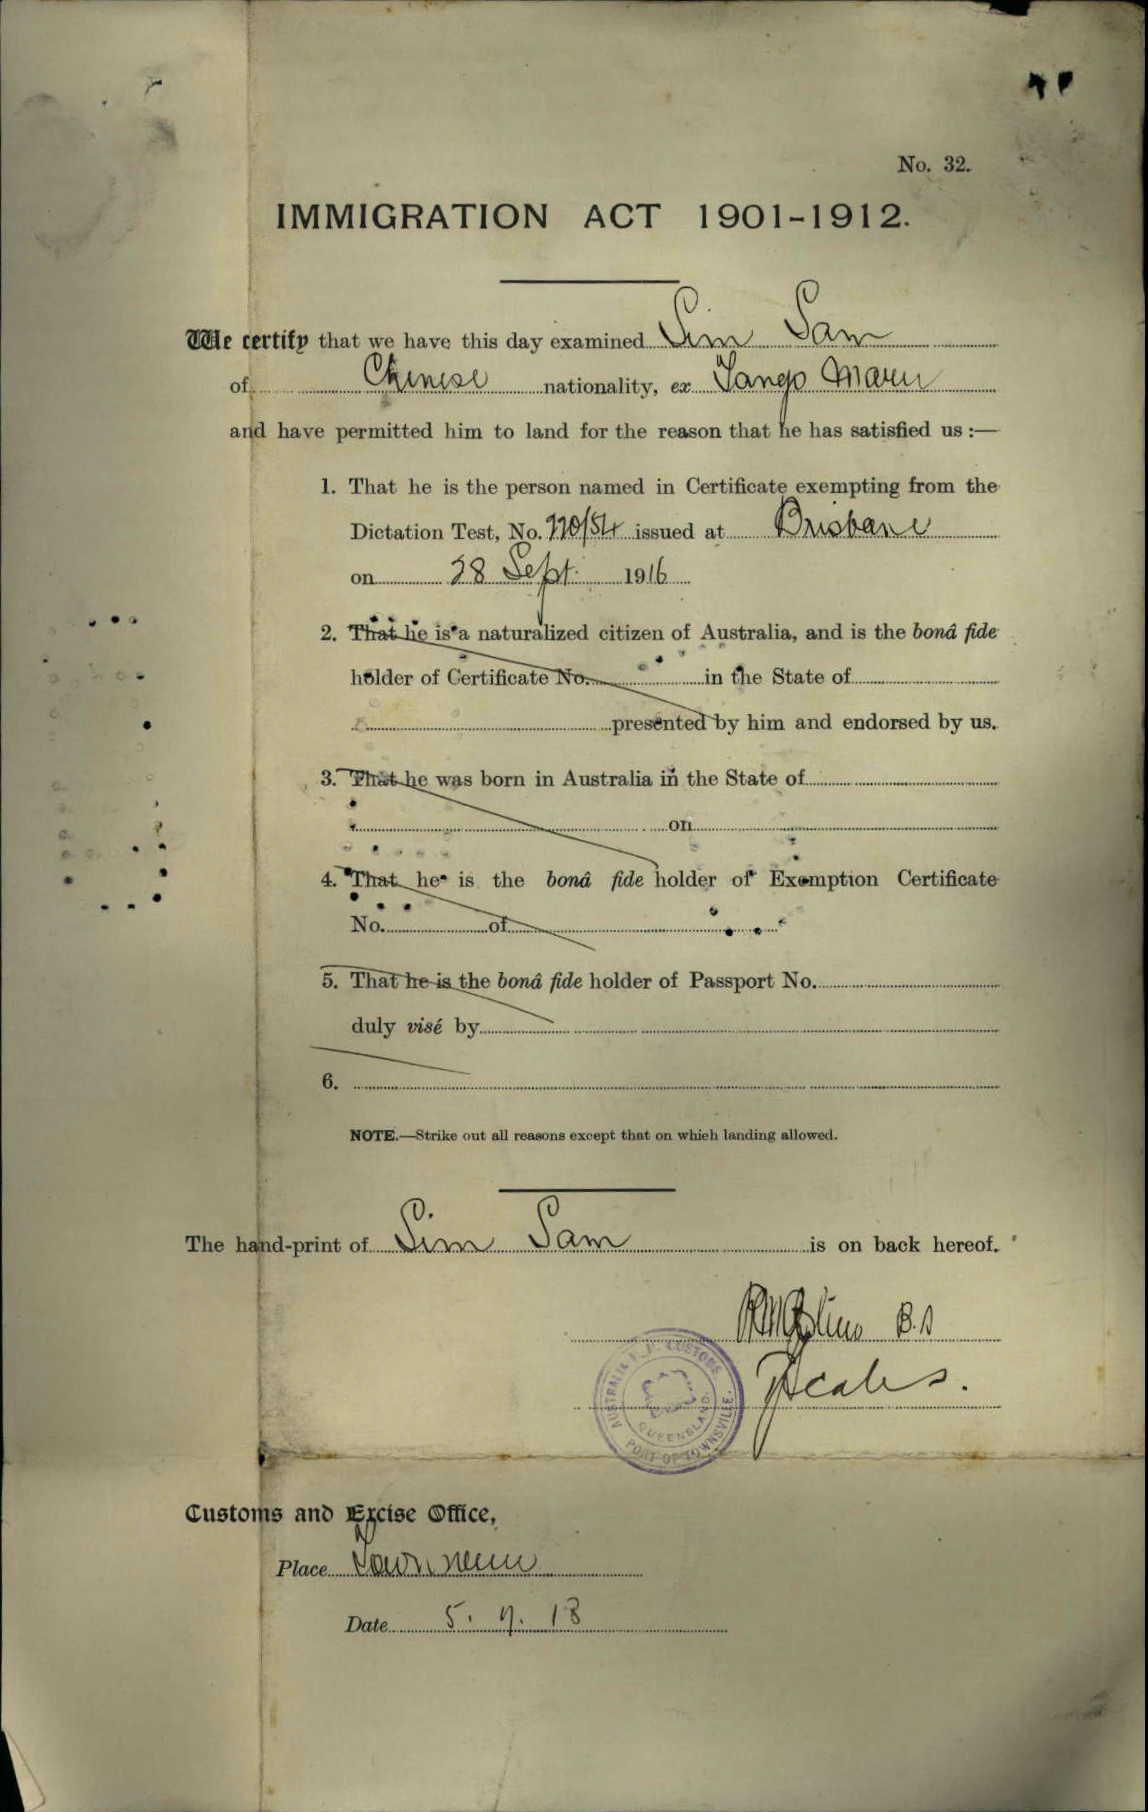 No. 32.
IMMIGRATION ACT 1901-1912.
We certify that we have this day examined Sim Sam
of Chinese nationality, ex Tango Maru
and have permitted him to land for the reason that he has satisfied us :—
1. That he is the person named in Certificate exempting from the
Dictation Test, No. 220/54 issued at Brisbane
on 28 Sept. 1916
2. That he is a naturalized citizen of Australia, and is the bonâ fide
holder of Certificate No. in the State of
presented by him and endorsed by us.
3. That he was born in Australia in the State of
on
4. That he is the bonâ fide holder of Exemption Certificate
No. of
5. That he is the bonâ fide holder of Passport No.
duly visé by
6.
NOTE.—Strike out all reasons except that on which landing allowed.
The hand-print of Sim Sam is on back hereof.
AUSTRALIA CUSTOMS
QUEENSLAND
PORT OF TOWNSVILLE
Customs and Excise Office,
Place Townsville
Date 5. 9. 18